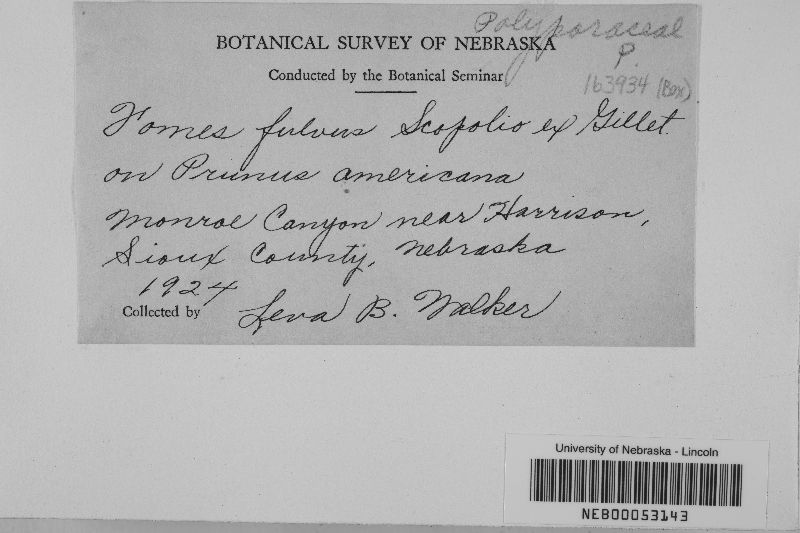 Polyporaceae
P.
163934 (Box)
BOTANICAL SURVEY OF NEBRASKA
Conducted by the Botanical Seminar
Fomes fulvus Scopolio ex Gillet.
on Prunus americana
Monroe Canyon near Harrison,
Sioux County, Nebraska
1924
Collected by Leva B. Walker
University of Nebraska - Lincoln
NEB00053143